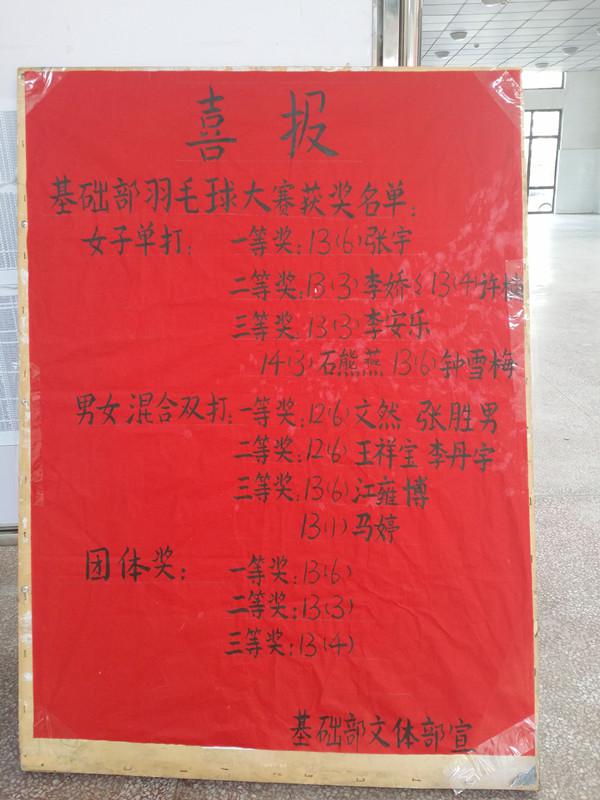 喜报
基础部羽毛球大赛获奖名单:
女子单打: 一等奖:13(6)张宇
二等奖:13(3)李娇 13(4)许
三等奖 13(3)李安乐
14(3)石熊燕 13(6)钟雪梅
男女混合双打:一等奖:12(6)文然 张胜男
二等奖:12(6)王祥宝 李丹宇
三等奖:13(6)江雍博
13(1)马婷
团体奖: 一等奖:13(6)
二等奖:13(3)
三等奖:13(4)
基础部文体部宣